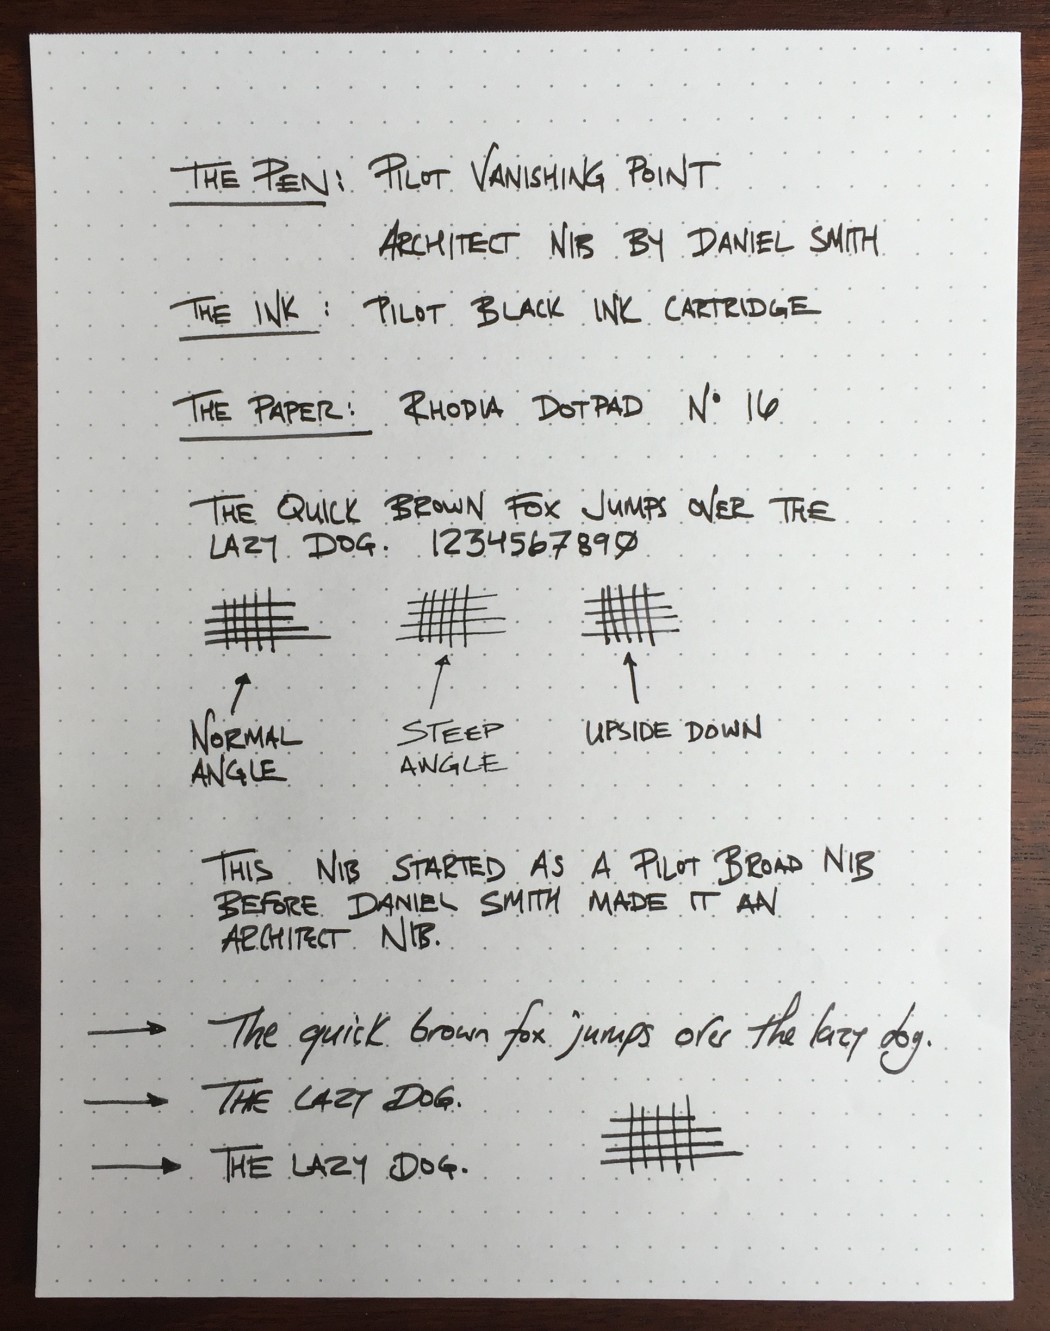 THE PEN: PILOT VANISHING POINT
ARCHITECT NIB BY DANIEL SMITH
THE INK: PILOT BLACK INK CARTRIDGE
THE PAPER: RHODIA DOTPAD Nº 16
THE QUICK BROWN FOX JUMPS OVER THE
LAZY DOG. 1234567890
NORMAL
ANGLE
STEEP
ANGLE
UPSIDE DOWN
THIS NIB STARTED AS A PILOT BROAD NIB
BEFORE DANIEL SMITH MADE IT AN
ARCHITECT NIB.
The quick brown fox jumps over the lazy dog.
THE LAZY DOG.
THE LAZY DOG.